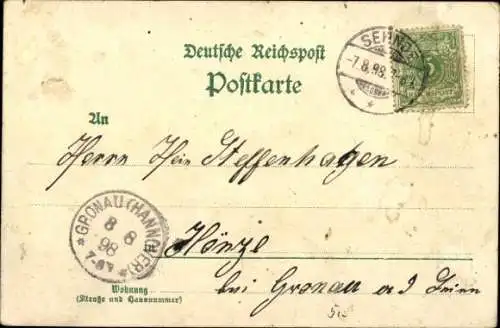 Deutsche Reichspost
Postkarte
SEHNDE
-7.8.98.
5
An
Herrn Hein Steffenhagen
GRONAU (HANNOVER)
8 8
98
7-8V
Hönze
bei Gronau a d Leine
Wohnung
(Straße und Hausnummer)